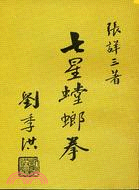 張詳三著
七星螳螂拳
劉季洪